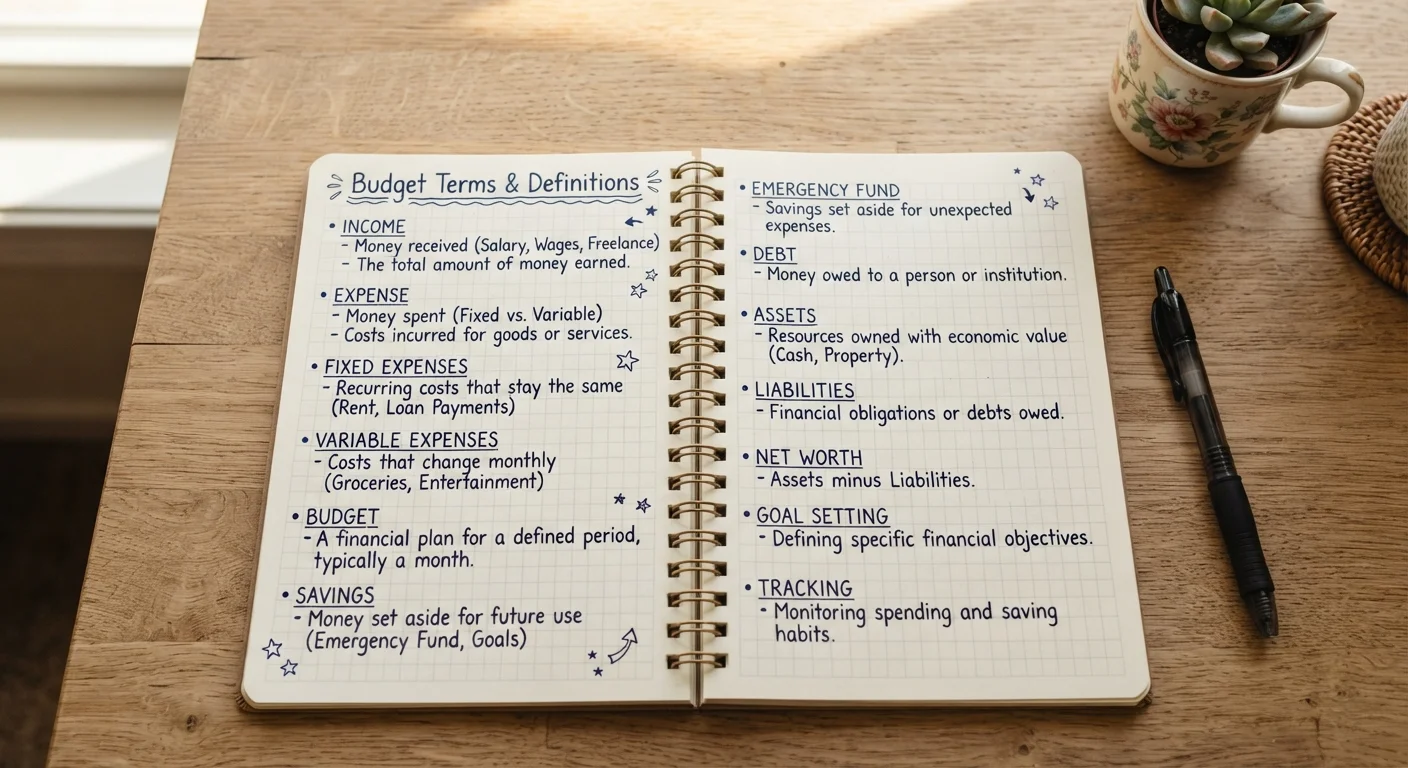 Budget Terms & Definitions
• INCOME
- Money received (Salary, Wages, Freelance)
- The total amount of money earned.
• EXPENSE
- Money spent (Fixed vs. Variable)
- Costs incurred for goods or services.
• FIXED EXPENSES
- Recurring costs that stay the same
(Rent, Loan Payments)
• VARIABLE EXPENSES
- Costs that change monthly
(Groceries, Entertainment)
• BUDGET
- A financial plan for a defined period,
typically a month.
• SAVINGS
- Money set aside for future use
(Emergency Fund, Goals)
• EMERGENCY FUND
- Savings set aside for unexpected
expenses.
• DEBT
- Money owed to a person or institution.
• ASSETS
- Resources owned with economic value
(Cash, Property).
• LIABILITIES
- Financial obligations or debts owed.
• NET WORTH
- Assets minus Liabilities.
• GOAL SETTING
- Defining specific financial objectives.
• TRACKING
- Monitoring spending and saving
habits.